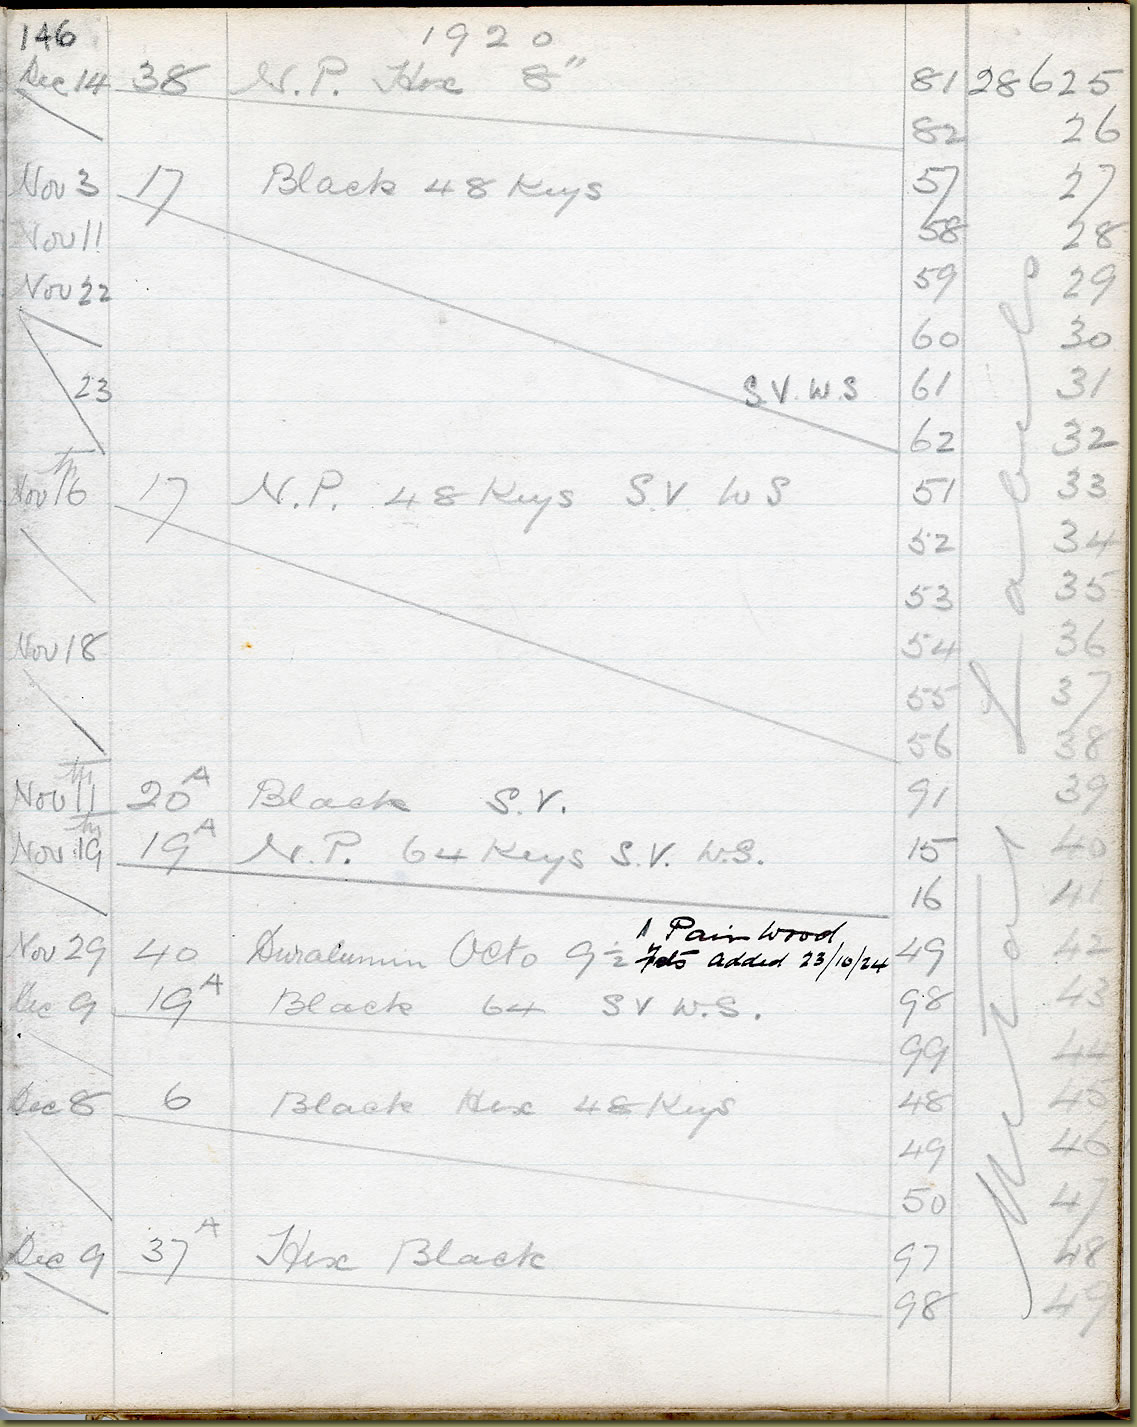 146 1920
Dec 14 38 N.P. Hex 8" 81 28625
82 26
Nov 3 17 Black 48 Keys 57 27
Nov 11 58 28
Nov 22 59 29
60 30
23 S.V. W.S 61 31
62 32
Nov 16th 17 N.P. 48 Keys S.V. W S 51 33
52 34
53 35
Nov 18 54 36
55 37
56 38
Nov 11th 20A Black S.V. 91 39
Nov 19th 19A N.P. 64 Keys S.V. W.S. 15 40
16 41
1 Pair Wood
Nov 29 40 Duralumin Octo 9½ added 23/10/24 49 42
Dec 9 19A Black 64 S V W.S. 98 43
99 44
Dec 8 6 Black Hex 48 Keys 48 45
49 46
50 47
Dec 9 37A Hex Black 97 48
98 49